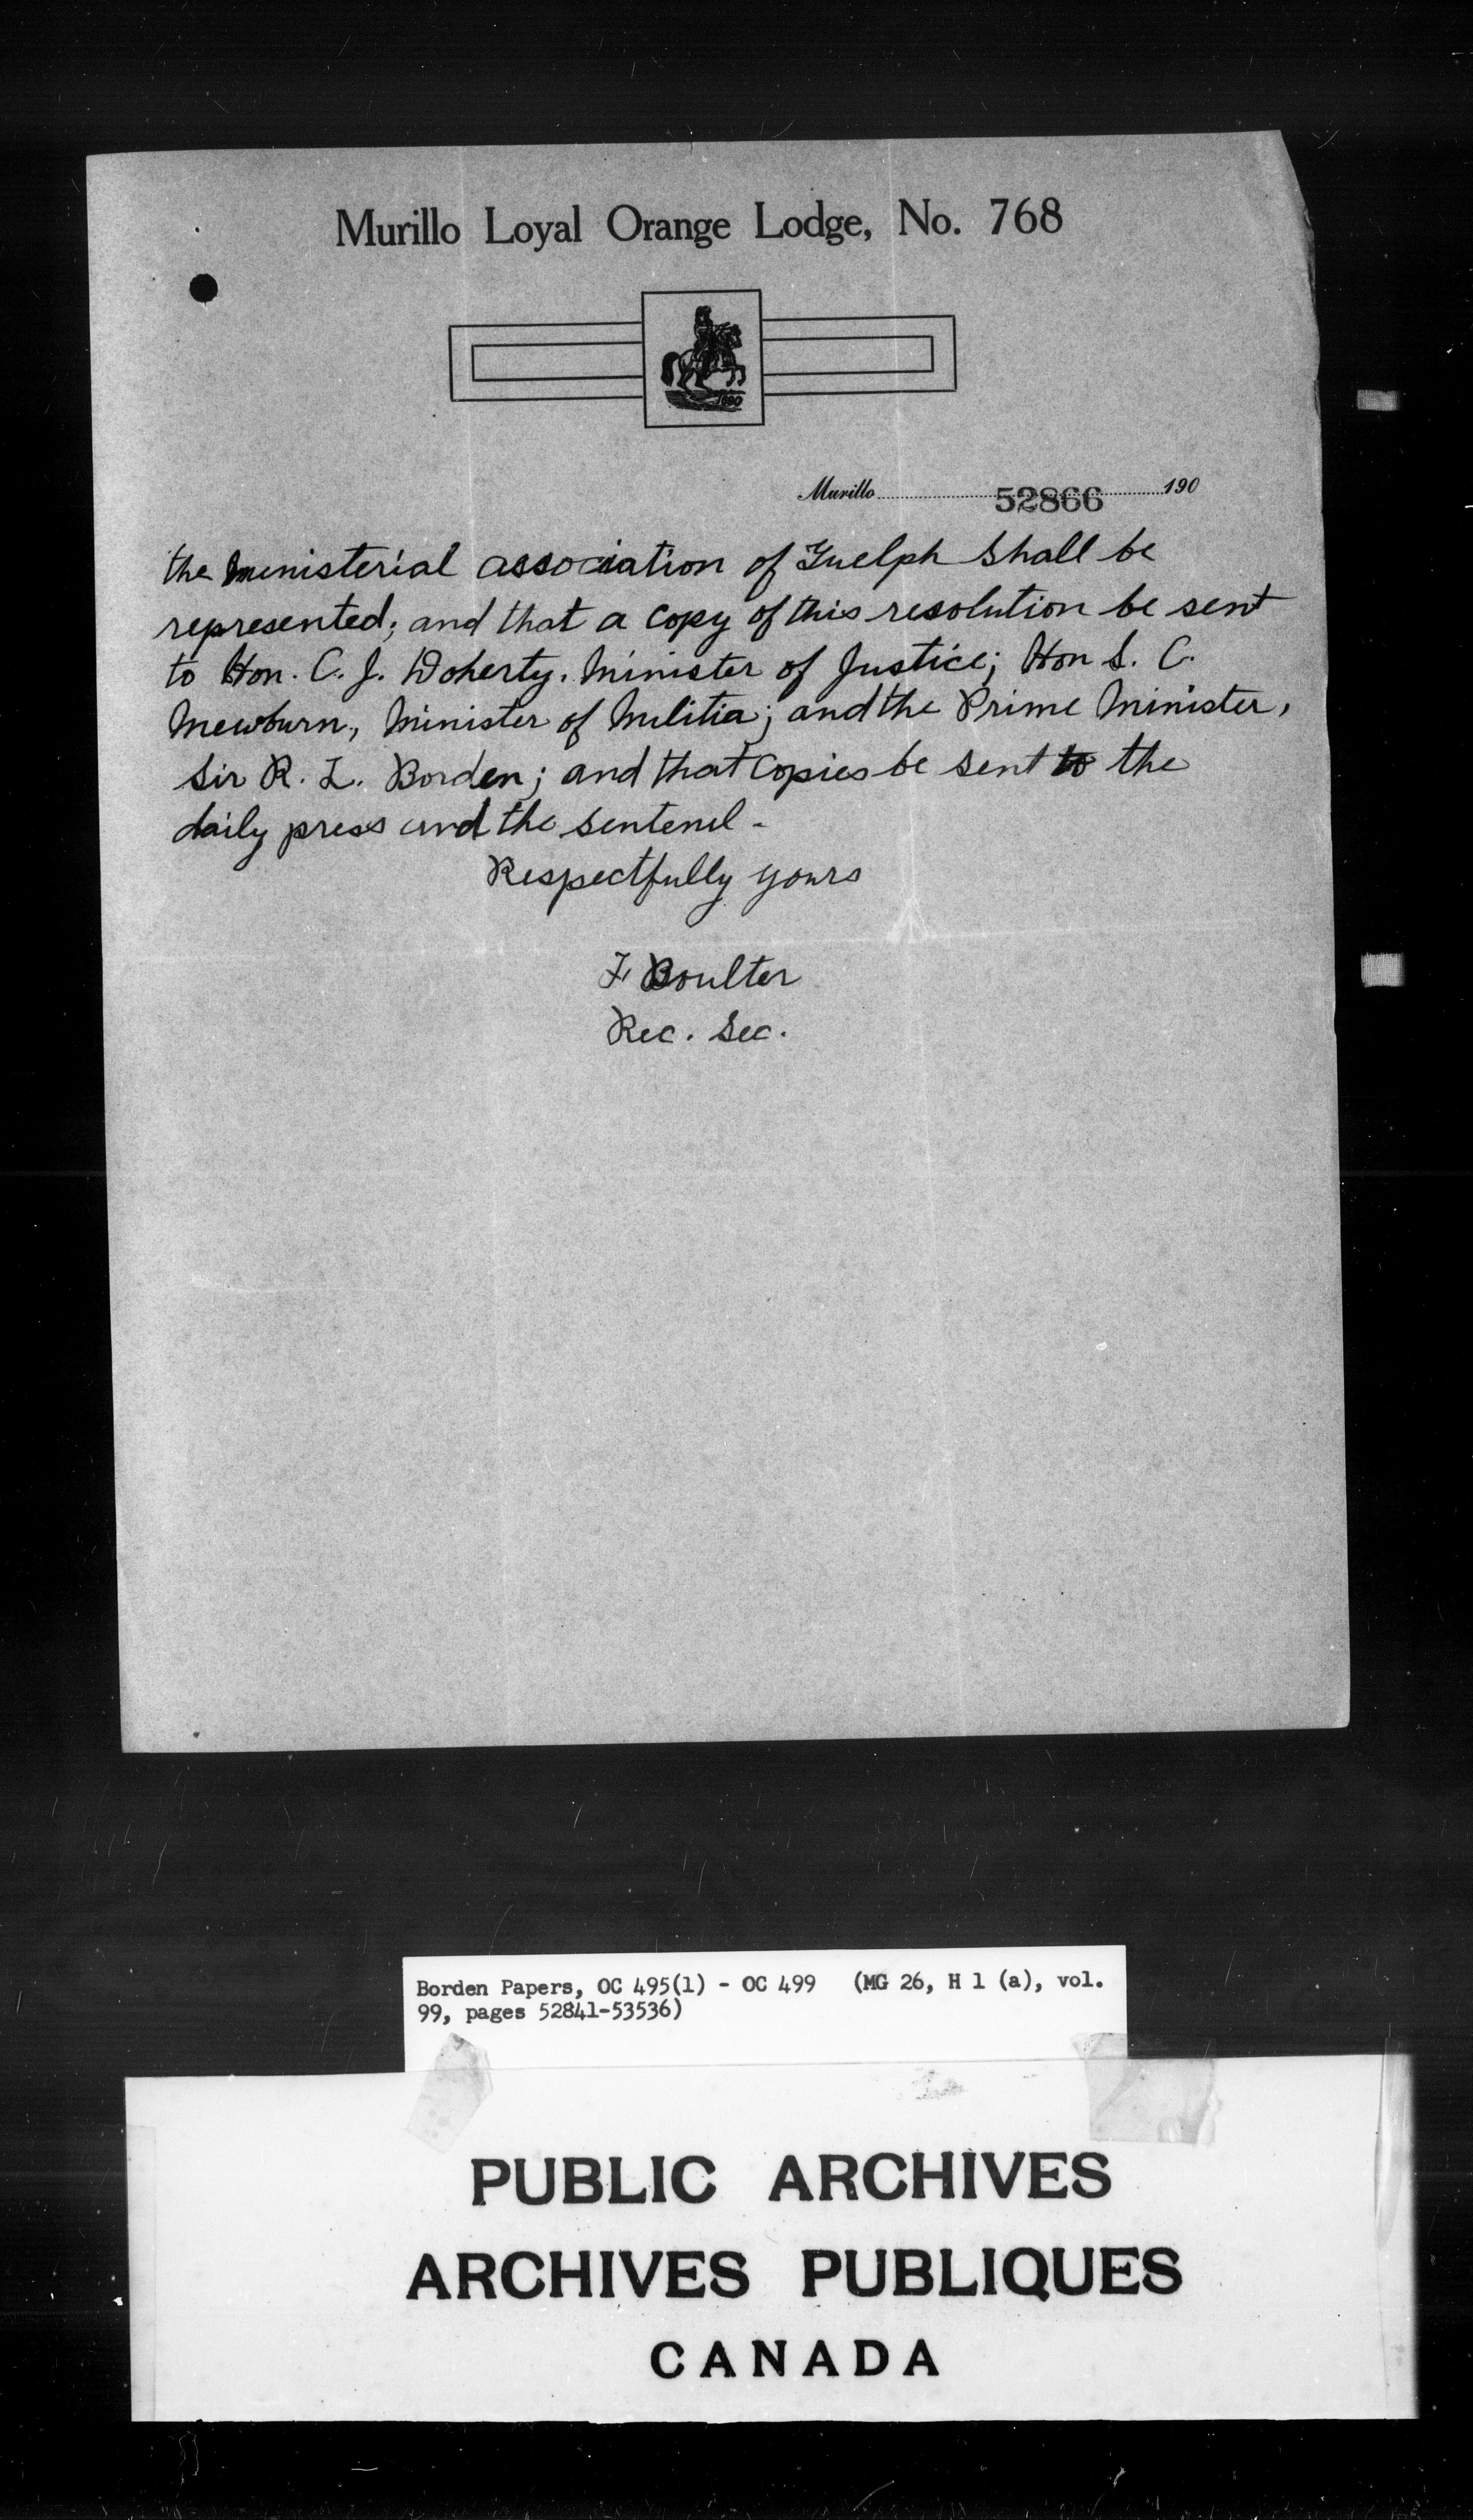 Murillo Loyal Orange Lodge, No. 768
1690
Murillo 52866 190
the ministerial association of Guelph shall be
represented; and that a copy of this resolution be sent
to Hon. C. J. Doherty. Minister of Justice; Hon S. C.
Mewburn, Minister of Militia; and the Prime Minister,
Sir R. L. Borden; and that copies be sent to the
daily press and the sentenel -
Respectfully yours
F Boulter
Rec. Sec.
Borden Papers, OC 495(1) - OC 499 (MG 26, H 1 (a), vol.
99, pages 52841-53536)
PUBLIC ARCHIVES
ARCHIVES PUBLIQUES
CANADA